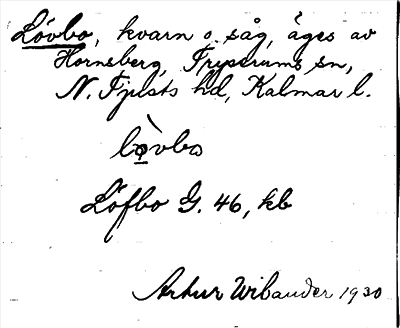 Lövbo, kvarn o. såg, äges av
Hornsberg, Tryserums sn,
N. Tjusts hd, Kalmar l.
lo̱vbo
Löfbo G. 46, kb
Artur Wibander 1930